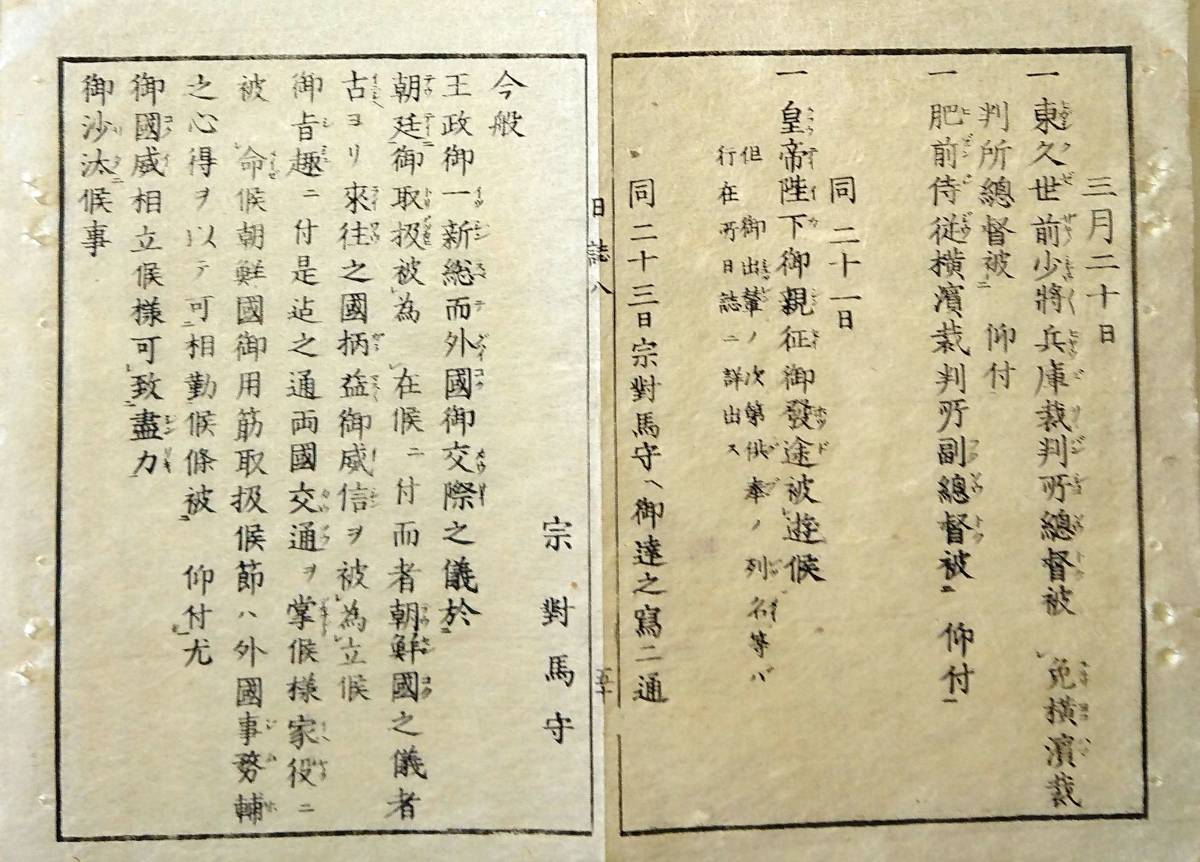 三月二十日
一東久世前少將兵庫裁判所總督被　免橫濱裁
判所總督被　仰付
一肥前侍従橫濱裁判所副總督被　仰付
同二十一日
一皇帝陛下御親征御發途被遊候
但御出輦ノ次第供奉ノ列名等ハ
行在所日誌ニ詳出ス
同二十三日宗對馬守ヘ御達之寫二通
日誌八
五十
宗對馬守
今般
王政御一新總而外國御交際之儀於
朝廷御取扱被為　在候ニ付而者朝鮮國之儀者
古ヨリ來往之國柄益御威信ヲ被為立候
御旨趣ニ付是迠之通両國交通ヲ掌候樣家役ニ
被　命候朝鮮國御用筋取扱候節ハ外國事務輔
之心得ヲ以テ可相勤候條被　仰付尤
御國威相立候樣可致盡力
御沙汰候事